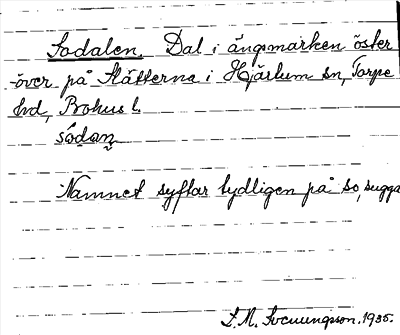 Sodalen. Dal i ängsmarken öster
över på Slätterna i Hjärtum sn, Torpe
hd, Bohus l.
sódan
Namnet syftar tydligen på so, sugga
S. M. Svenungsson. 1935.